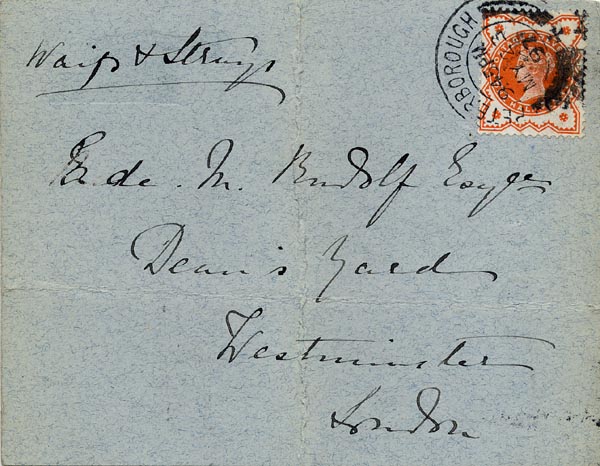 Waifs & Strays
PETERBOROUGH
E. de. M. Rudolf Esqre
Dean's Yard
Westminster
London